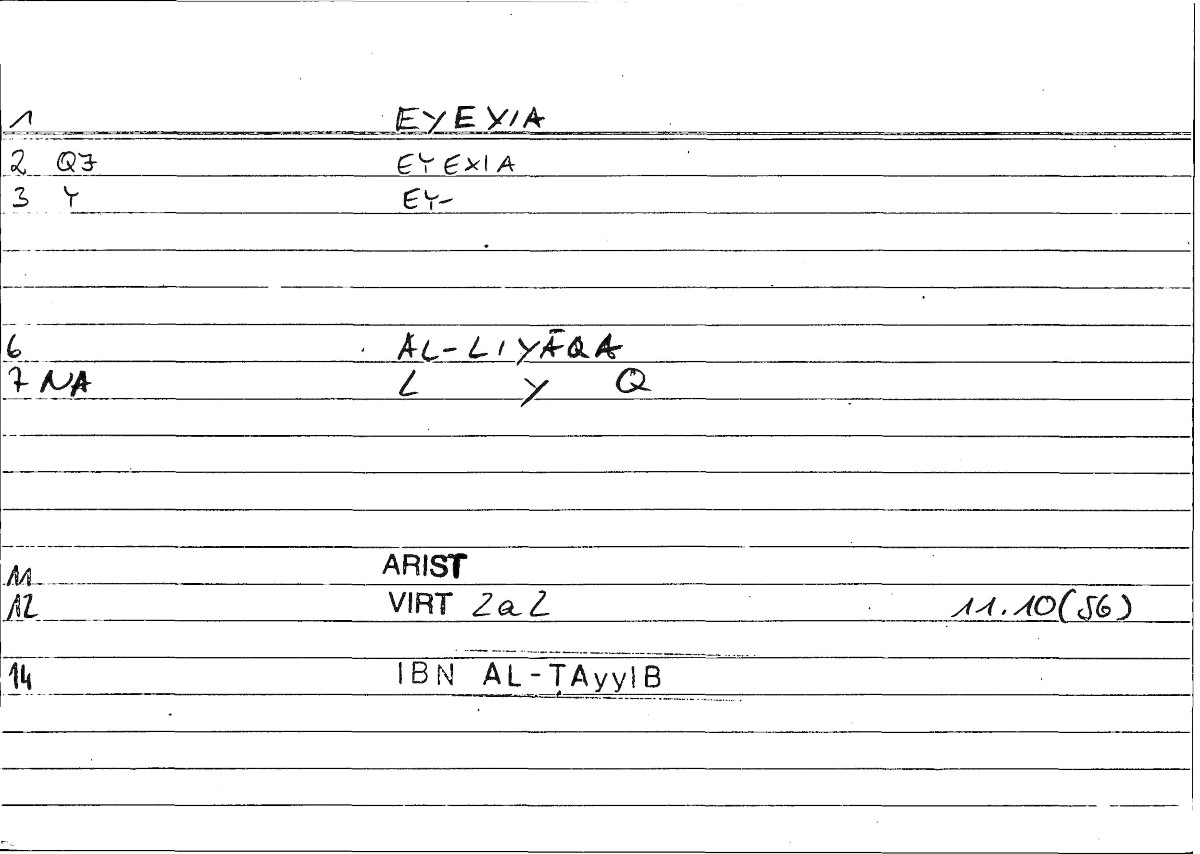 1 EYEXIA
2 QJ EYEXIA
3 Y EY-
6 AL-LIYĀQA
7 NA L Y Q
11 ARIST
12 VIRT 2a2 11.10(56)
14 IBN AL-ṬAyyIB